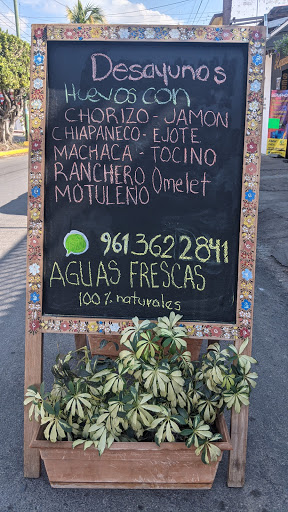 Desayunos
Huevos con
CHORIZO - JAMON
CHIAPANECO - EJOTE
MACHACA - TOCINO
RANCHERO Omelet
MOTULEÑO
961 362 2841
AGUAS FRESCAS
100% naturales